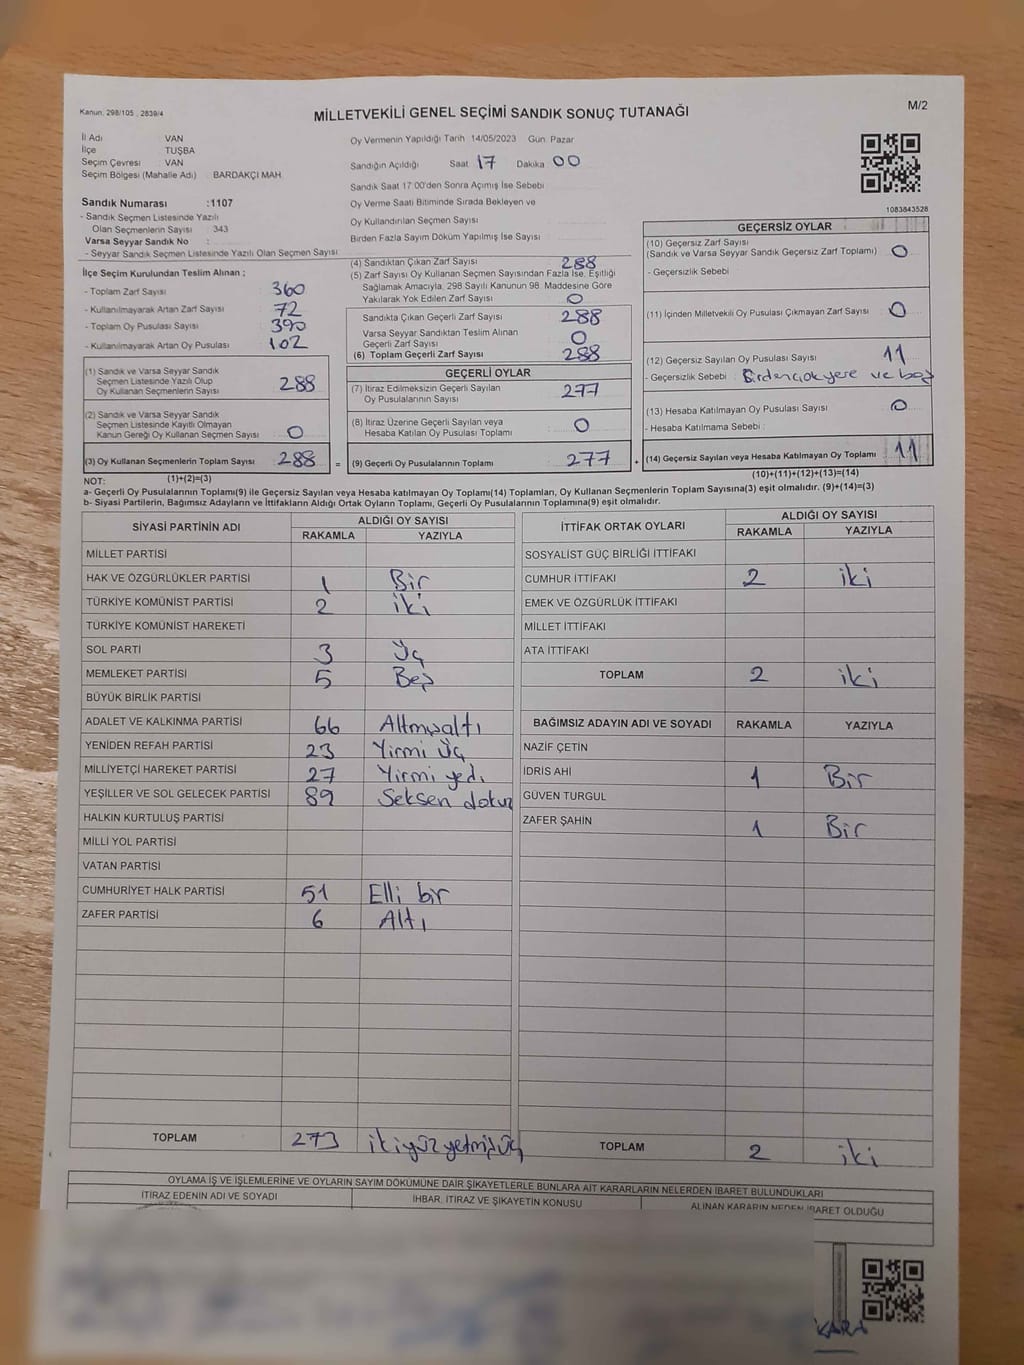 Kanun: 298/105 , 2839/4
MİLLETVEKİLİ GENEL SEÇİMİ SANDIK SONUÇ TUTANAĞI
M/2
İl Adı VAN
İlçe TUŞBA
Seçim Çevresi VAN
Seçim Bölgesi (Mahalle Adı) BARDAKÇI MAH.
Sandık Numarası :1107
- Sandık Seçmen Listesinde Yazılı
Olan Seçmenlerin Sayısı : 343
Varsa Seyyar Sandık No :
- Seyyar Sandık Seçmen Listesinde Yazılı Olan Seçmen Sayısı
Oy Vermenin Yapıldığı Tarih 14/05/2023 Gün: Pazar
Sandığın Açıldığı Saat 17 Dakika 00
Sandık Saat 17:00'den Sonra Açılmış İse Sebebi
Oy Verme Saati Bitiminde Sırada Bekleyen ve
Oy Kullandırılan Seçmen Sayısı
Birden Fazla Sayım Döküm Yapılmış İse Sayısı
1083843528
İlçe Seçim Kurulundan Teslim Alınan ;
- Toplam Zarf Sayısı 360
- Kullanılmayarak Artan Zarf Sayısı 72
- Toplam Oy Pusulası Sayısı 390
- Kullanılmayarak Artan Oy Pusulası 102
(1) Sandık ve Varsa Seyyar Sandık
Seçmen Listesinde Yazılı Olup
Oy Kullanan Seçmenlerin Sayısı 288
(2) Sandık ve Varsa Seyyar Sandık
Seçmen Listesinde Kayıtlı Olmayan
Kanun Gereği Oy Kullanan Seçmen Sayısı 0
(3) Oy Kullanan Seçmenlerin Toplam Sayısı 288
(4) Sandıktan Çıkan Zarf Sayısı 288
(5) Zarf Sayısı Oy Kullanan Seçmen Sayısından Fazla İse, Eşitliği
Sağlamak Amacıyla, 298 Sayılı Kanunun 98. Maddesine Göre
Yakılarak Yok Edilen Zarf Sayısı 0
Sandıkta Çıkan Geçerli Zarf Sayısı 288
Varsa Seyyar Sandıktan Teslim Alınan
Geçerli Zarf Sayısı 0
(6) Toplam Geçerli Zarf Sayısı 288
GEÇERLİ OYLAR
(7) İtiraz Edilmeksizin Geçerli Sayılan
Oy Pusulalarının Sayısı 277
(8) İtiraz Üzerine Geçerli Sayılan veya
Hesaba Katılan Oy Pusulası Toplamı 0
= (9) Geçerli Oy Pusulalarının Toplamı 277
GEÇERSİZ OYLAR
(10) Geçersiz Zarf Sayısı
(Sandık ve Varsa Seyyar Sandık Geçersiz Zarf Toplamı) 0
- Geçersizlik Sebebi
(11) İçinden Milletvekili Oy Pusulası Çıkmayan Zarf Sayısı 0
(12) Geçersiz Sayılan Oy Pusulası Sayısı 11
- Geçersizlik Sebebi : Birden çok yere ve boş
(13) Hesaba Katılmayan Oy Pusulası Sayısı 0
- Hesaba Katılmama Sebebi :
+ (14) Geçersiz Sayılan veya Hesaba Katılmayan Oy Toplamı 11
NOT: (1)+(2)=(3)
(10)+(11)+(12)+(13)=(14)
a- Geçerli Oy Pusulalarının Toplamı(9) ile Geçersiz Sayılan veya Hesaba katılmayan Oy Toplamı(14) Toplamları, Oy Kullanan Seçmenlerin Toplam Sayısına(3) eşit olmalıdır. (9)+(14)=(3)
b- Siyasi Partilerin, Bağımsız Adayların ve İttifakların Aldığı Ortak Oyların Toplamı, Geçerli Oy Pusulalarının Toplamına(9) eşit olmalıdır.
SİYASİ PARTİNİN ADI ALDIĞI OY SAYISI
RAKAMLA YAZIYLA
MİLLET PARTİSİ
HAK VE ÖZGÜRLÜKLER PARTİSİ 1 Bir
TÜRKİYE KOMÜNİST PARTİSİ 2 iki
TÜRKİYE KOMÜNİST HAREKETİ
SOL PARTİ 3 Üç
MEMLEKET PARTİSİ 5 Beş
BÜYÜK BİRLİK PARTİSİ
ADALET VE KALKINMA PARTİSİ 66 Altmışaltı
YENİDEN REFAH PARTİSİ 23 Yirmi Üç
MİLLİYETÇİ HAREKET PARTİSİ 27 Yirmi yedi
YEŞİLLER VE SOL GELECEK PARTİSİ 89 Seksen dokuz
HALKIN KURTULUŞ PARTİSİ
MİLLİ YOL PARTİSİ
VATAN PARTİSİ
CUMHURİYET HALK PARTİSİ 51 Elli bir
ZAFER PARTİSİ 6 Altı
TOPLAM 273 ikiyüz yetmiş üç
İTTİFAK ORTAK OYLARI ALDIĞI OY SAYISI
RAKAMLA YAZIYLA
SOSYALİST GÜÇ BİRLİĞİ İTTİFAKI
CUMHUR İTTİFAKI 2 iki
EMEK VE ÖZGÜRLÜK İTTİFAKI
MİLLET İTTİFAKI
ATA İTTİFAKI
TOPLAM 2 iki
BAĞIMSIZ ADAYIN ADI VE SOYADI RAKAMLA YAZIYLA
NAZİF ÇETİN
İDRİS AHİ 1 Bir
GÜVEN TURGUL
ZAFER ŞAHİN 1 Bir
TOPLAM 2 iki
OYLAMA İŞ VE İŞLEMLERİNE VE OYLARIN SAYIM DÖKÜMÜNE DAİR ŞİKAYETLERLE BUNLARA AİT KARARLARIN NELERDEN İBARET BULUNDUKLARI
İTİRAZ EDENİN ADI VE SOYADI İHBAR, İTİRAZ VE ŞİKAYETİN KONUSU ALINAN KARARIN NEDEN İBARET OLDUĞU